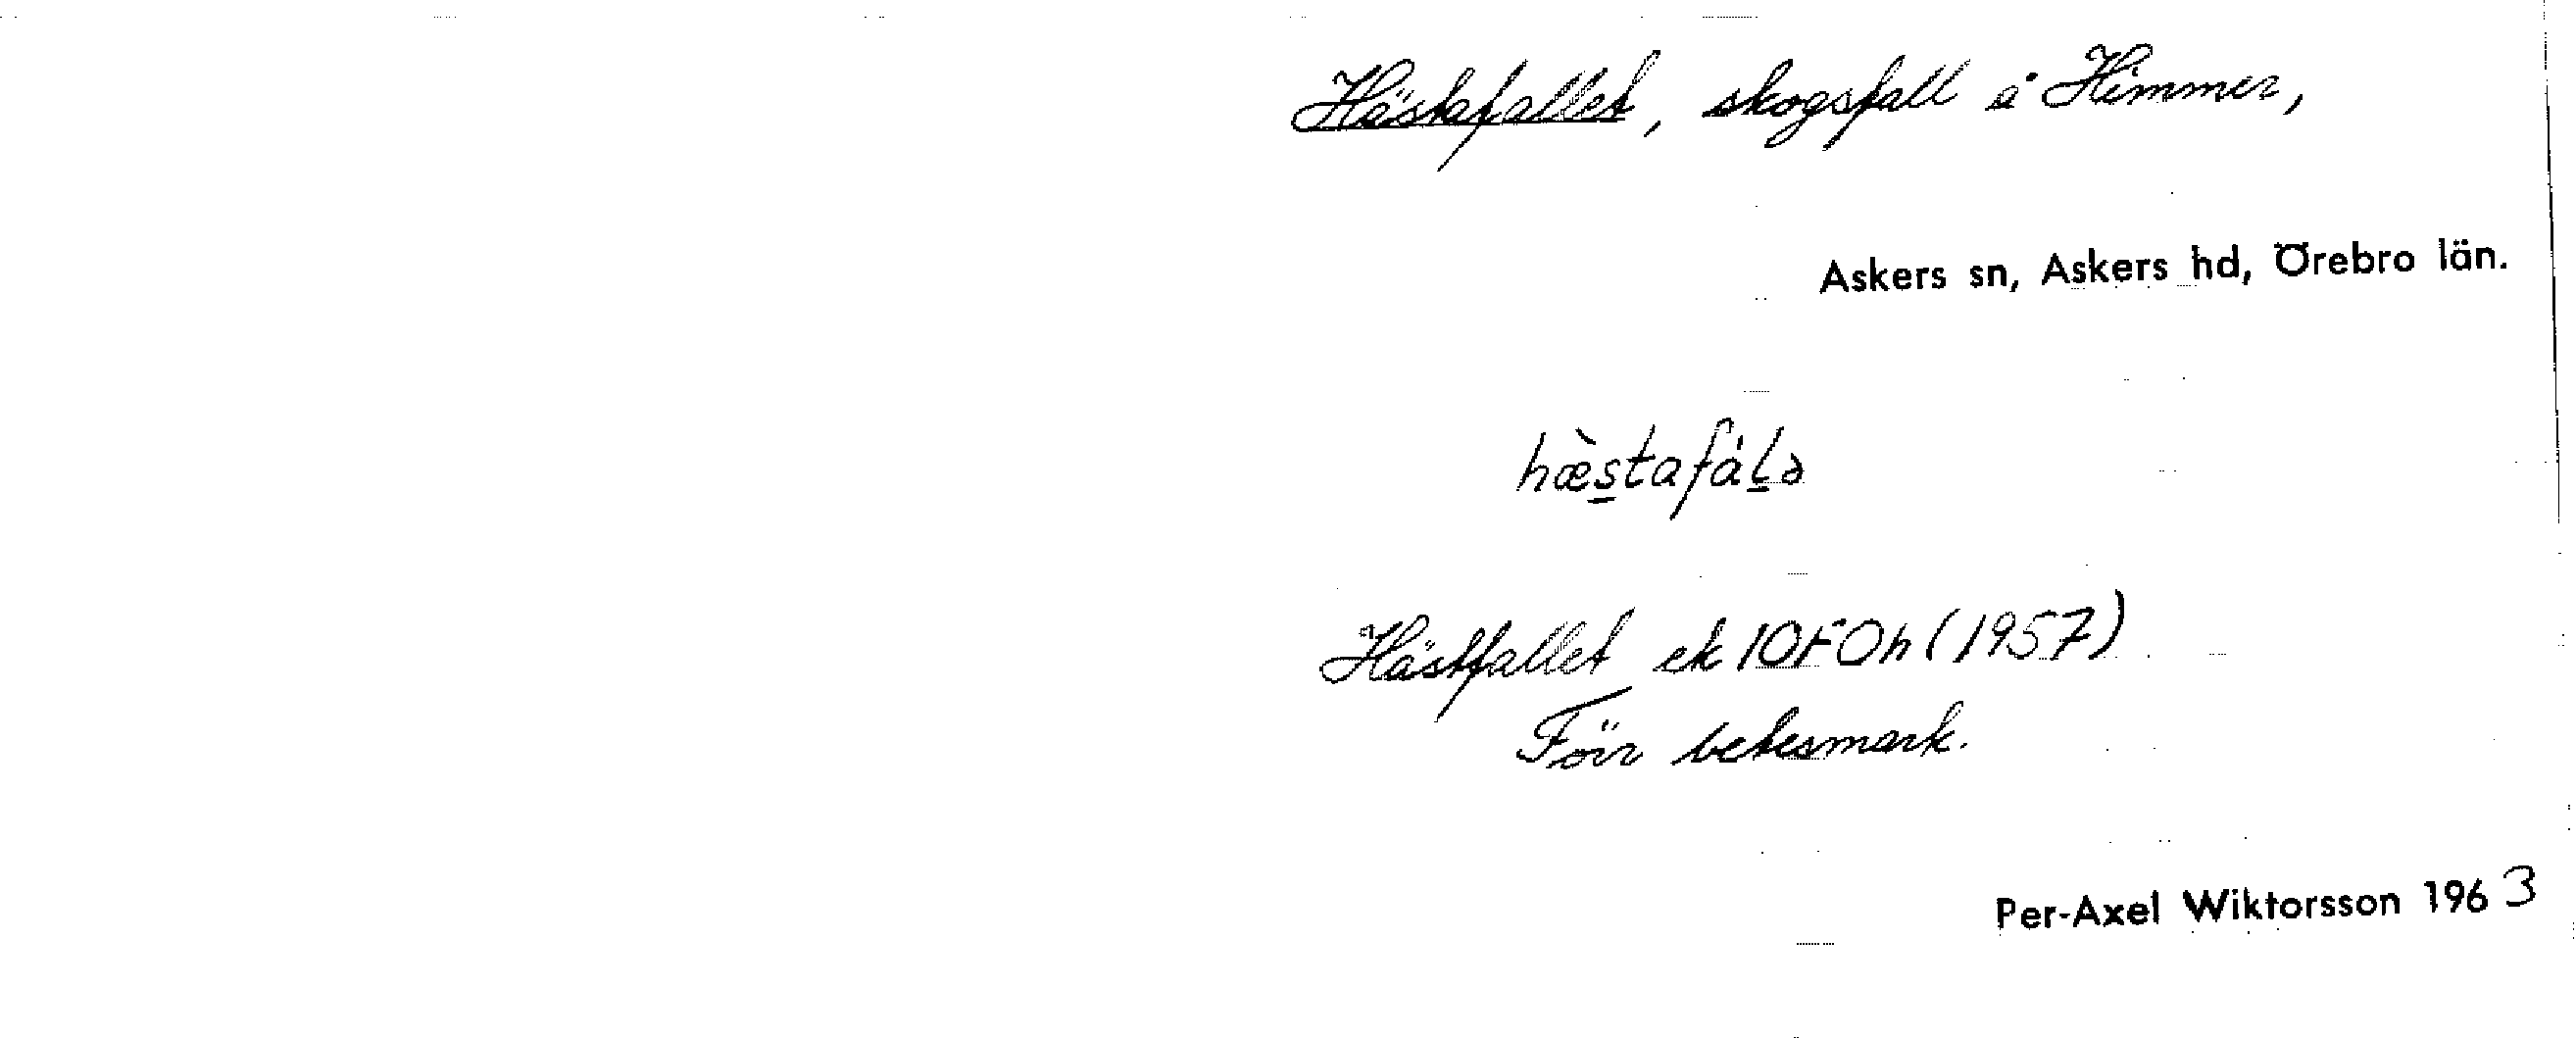 Hästafallet, skogsfall å Himmer,
Askers sn, Askers hd, Örebro län.
hæ̀s̲tafáḻə
Hästfallet ek 10F0h (1957)
Förr betesmark.
Per-Axel Wiktorsson 1963